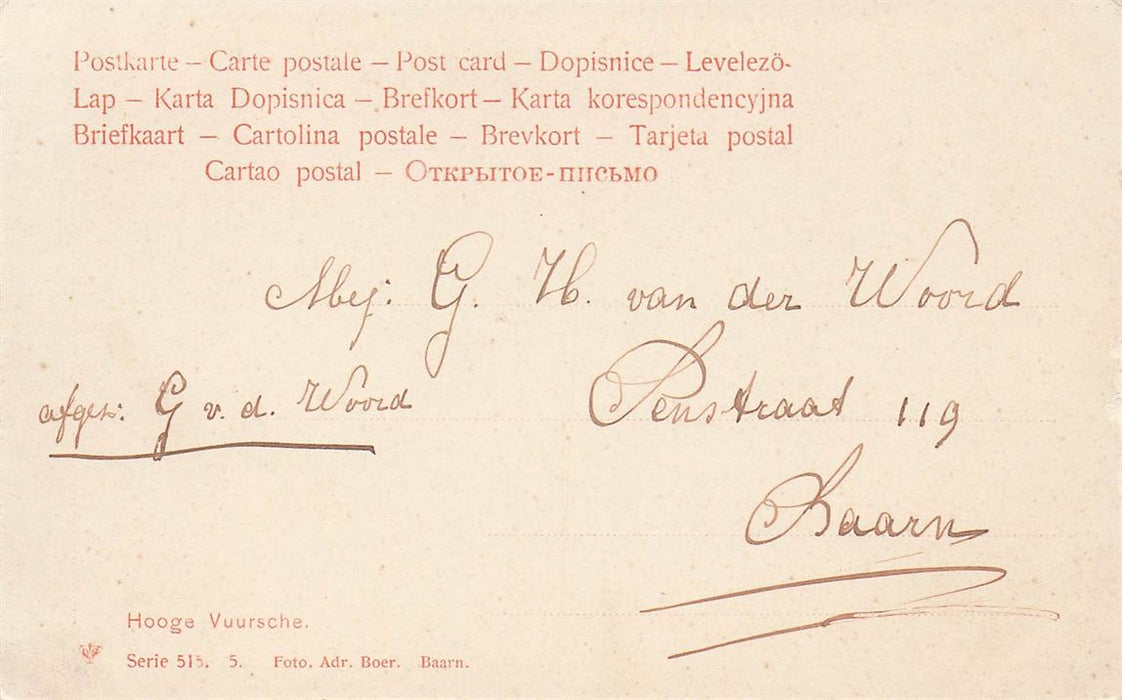 Postkarte – Carte postale – Post card – Dopisnice – Levelező-
Lap – Karta Dopisnica – Brefkort – Karta korespondencyjna
Briefkaart – Cartolina postale – Brevkort – Tarjeta postal
Cartao postal – Открытое-письмо
Mej: G. H. van der Woord
afgez: G v. d. Woord
Penstraat 119
Baarn
Hooge Vuursche.
Serie 515. 5. Foto. Adr. Boer. Baarn.